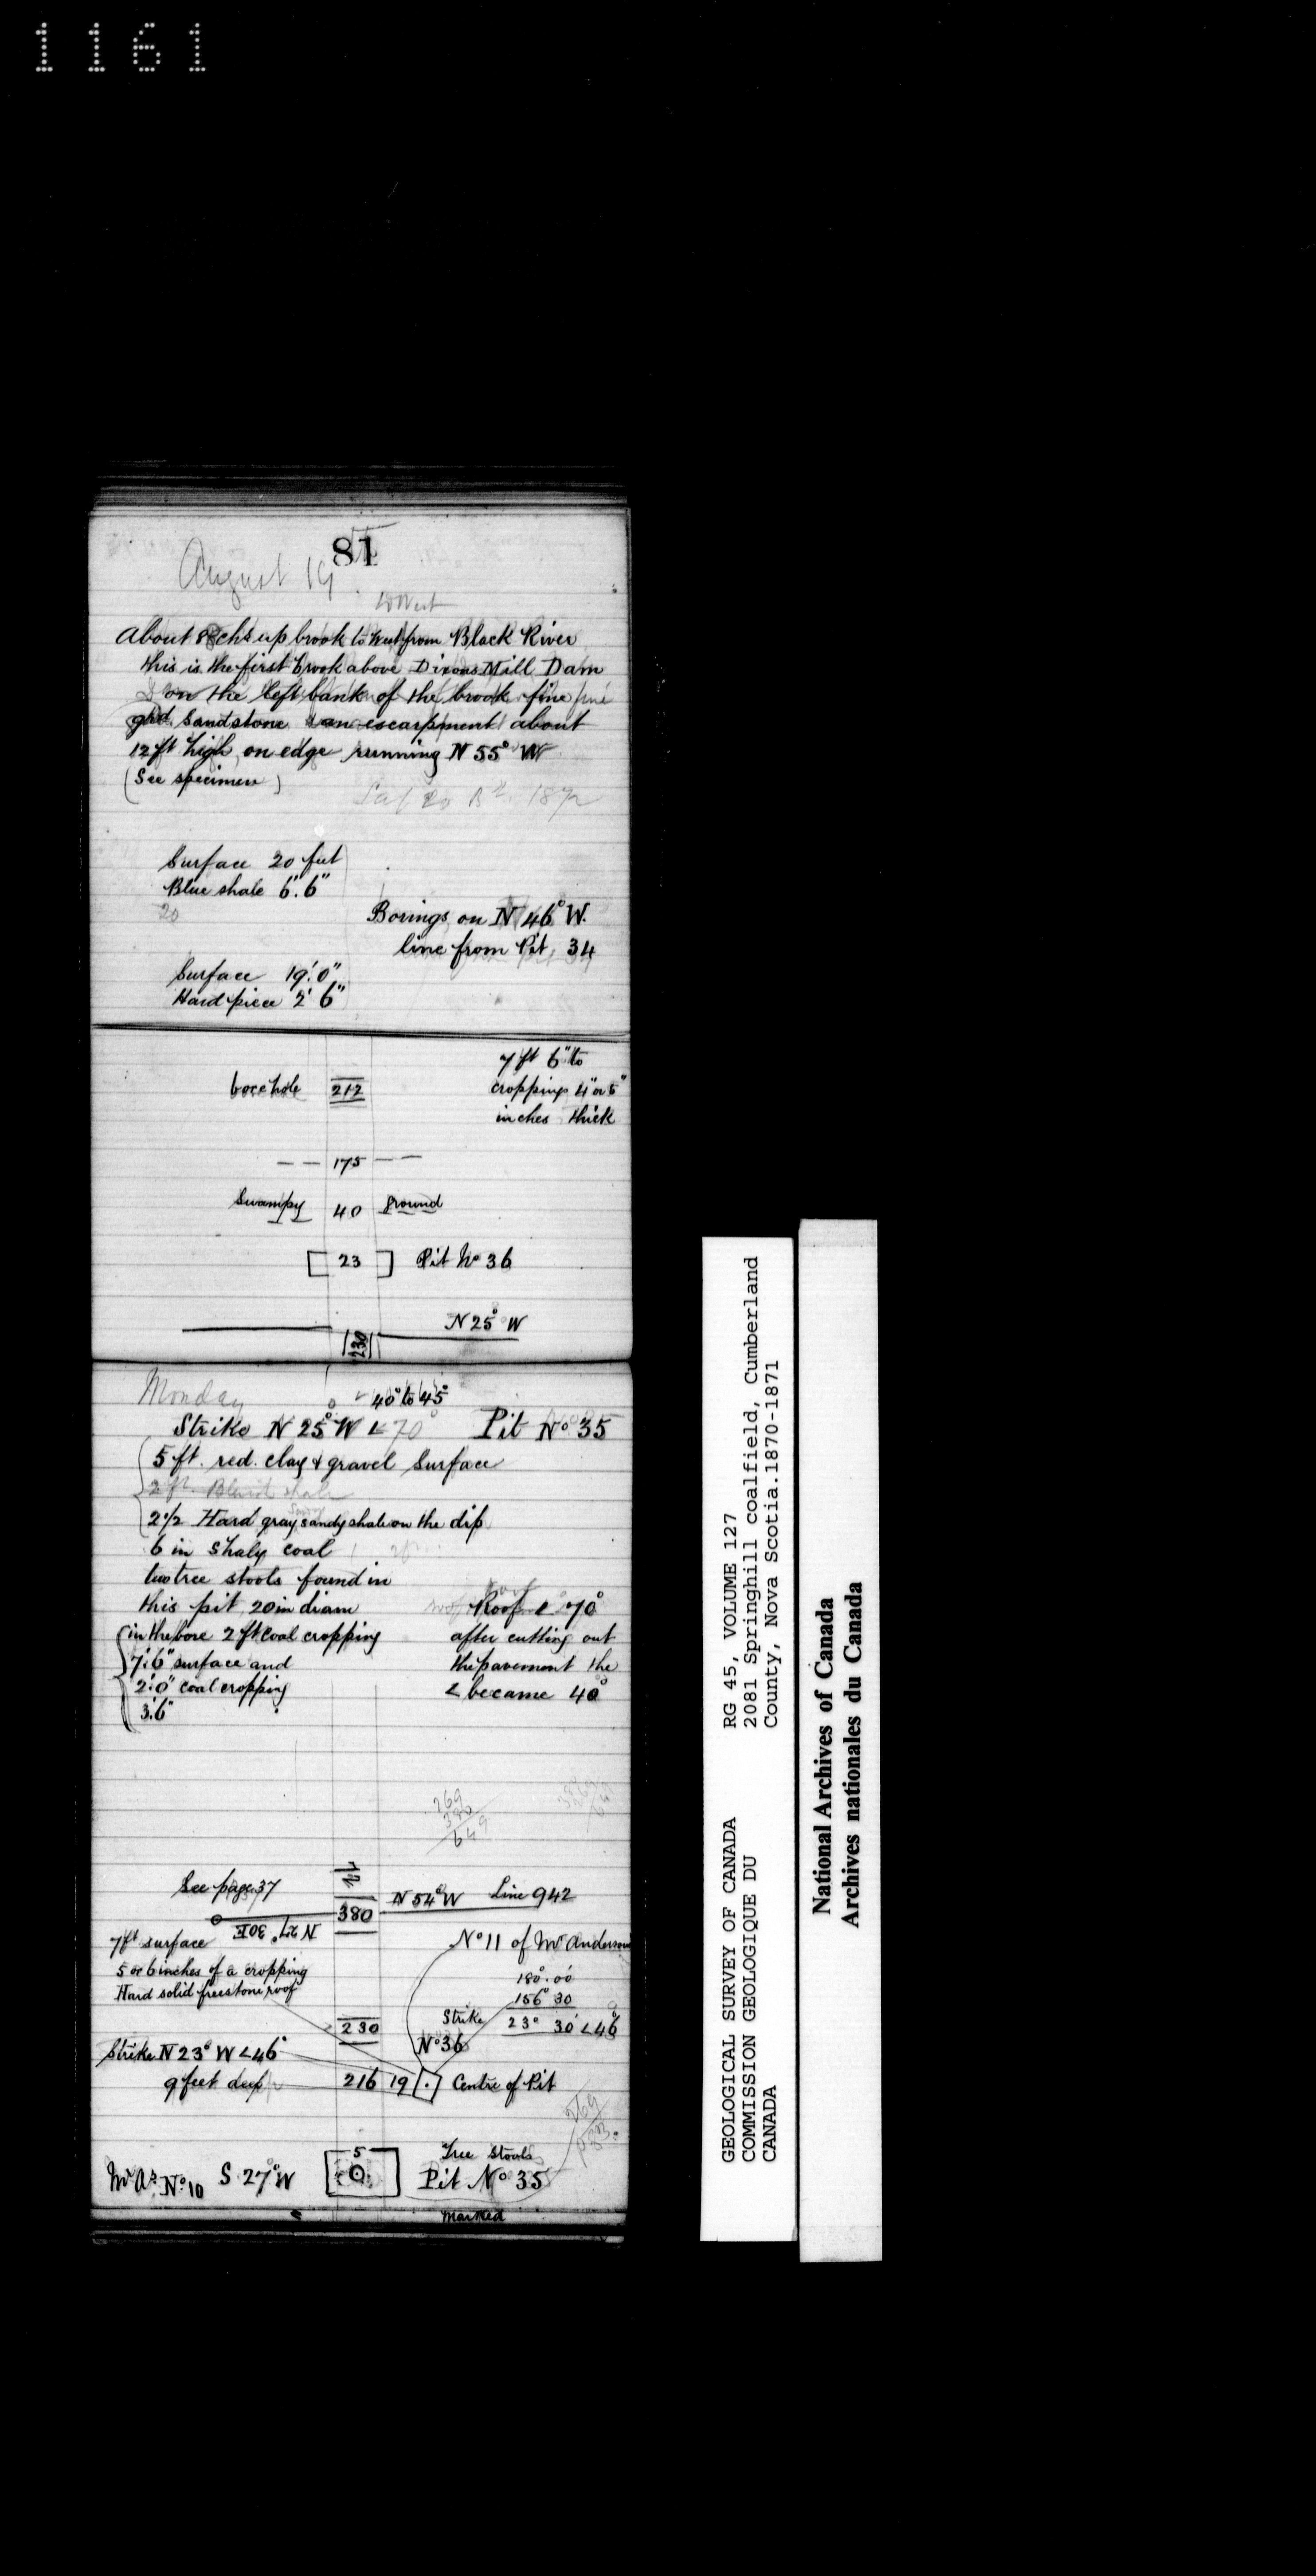 1161
81
August 19
to West
About 8 chs up brook to West from Black River
this is the first brook above Dixons Mill Dam
on the left bank of the brook fine
grd Sandstone an escarpment about
12 ft high, on edge running N 55° W
(See specimen)
1872
Surface 20 feet
Blue shale 6'.6"
20
Borings on N 46° W.
line from Pit 34
Surface 19'.0"
Hard piece 2' 6"
7 ft 6" to
borehole 212 cropping 4" or 5"
inches thick
— — 175 — —
Swampy 40 ground
23 Pit No 36
N 25° W
230
Monday 40° to 45°
Strike N 25° W ∠ 70° Pit No 35
5 ft. red. clay & gravel Surface
2 ft. shale
2 1/2 Hard gray sandy shale on the dip
6 in shaly coal
two tree stools found in
this pit, 20 in diam Roof ∠ 70°
in the bore 2 ft coal cropping after cutting out
7'.6" surface and the pavement the
2'.0" coal cropping ∠ became 40°
3'.6"
269
380
649
See page 37
N 54° W Line 942
380
N 27° 30' E
7 ft surface No 11 of Mr Anderson
5 or 6 inches of a cropping 180°.00'
Hard solid freestone roof 156° 30
230 Strike 23° 30' ∠46°
No 36
Strike N 23° W ∠46°
9 feet deep 216 19 Centre of Pit
269
5 Tree Stools
Mr A's No 10 S 27° W Pit No 35
Marked
GEOLOGICAL SURVEY OF CANADA
COMMISSION GEOLOGIQUE DU
CANADA
RG 45, VOLUME 127
2081 Springhill coalfield, Cumberland
County, Nova Scotia.1870-1871
National Archives of Canada
Archives nationales du Canada